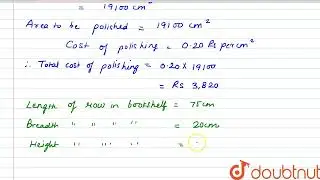 = 19100 cm²
Area to be polished = 19100 cm²
Cost of polishing = 0.20 Rs per cm²
∴ Total cost of polishing = 0.20 x 19100
= Rs 3,820
Length of row in bookshelf = 75cm
Breadth " " " " = 20cm
Height " " " " =
doubtnut